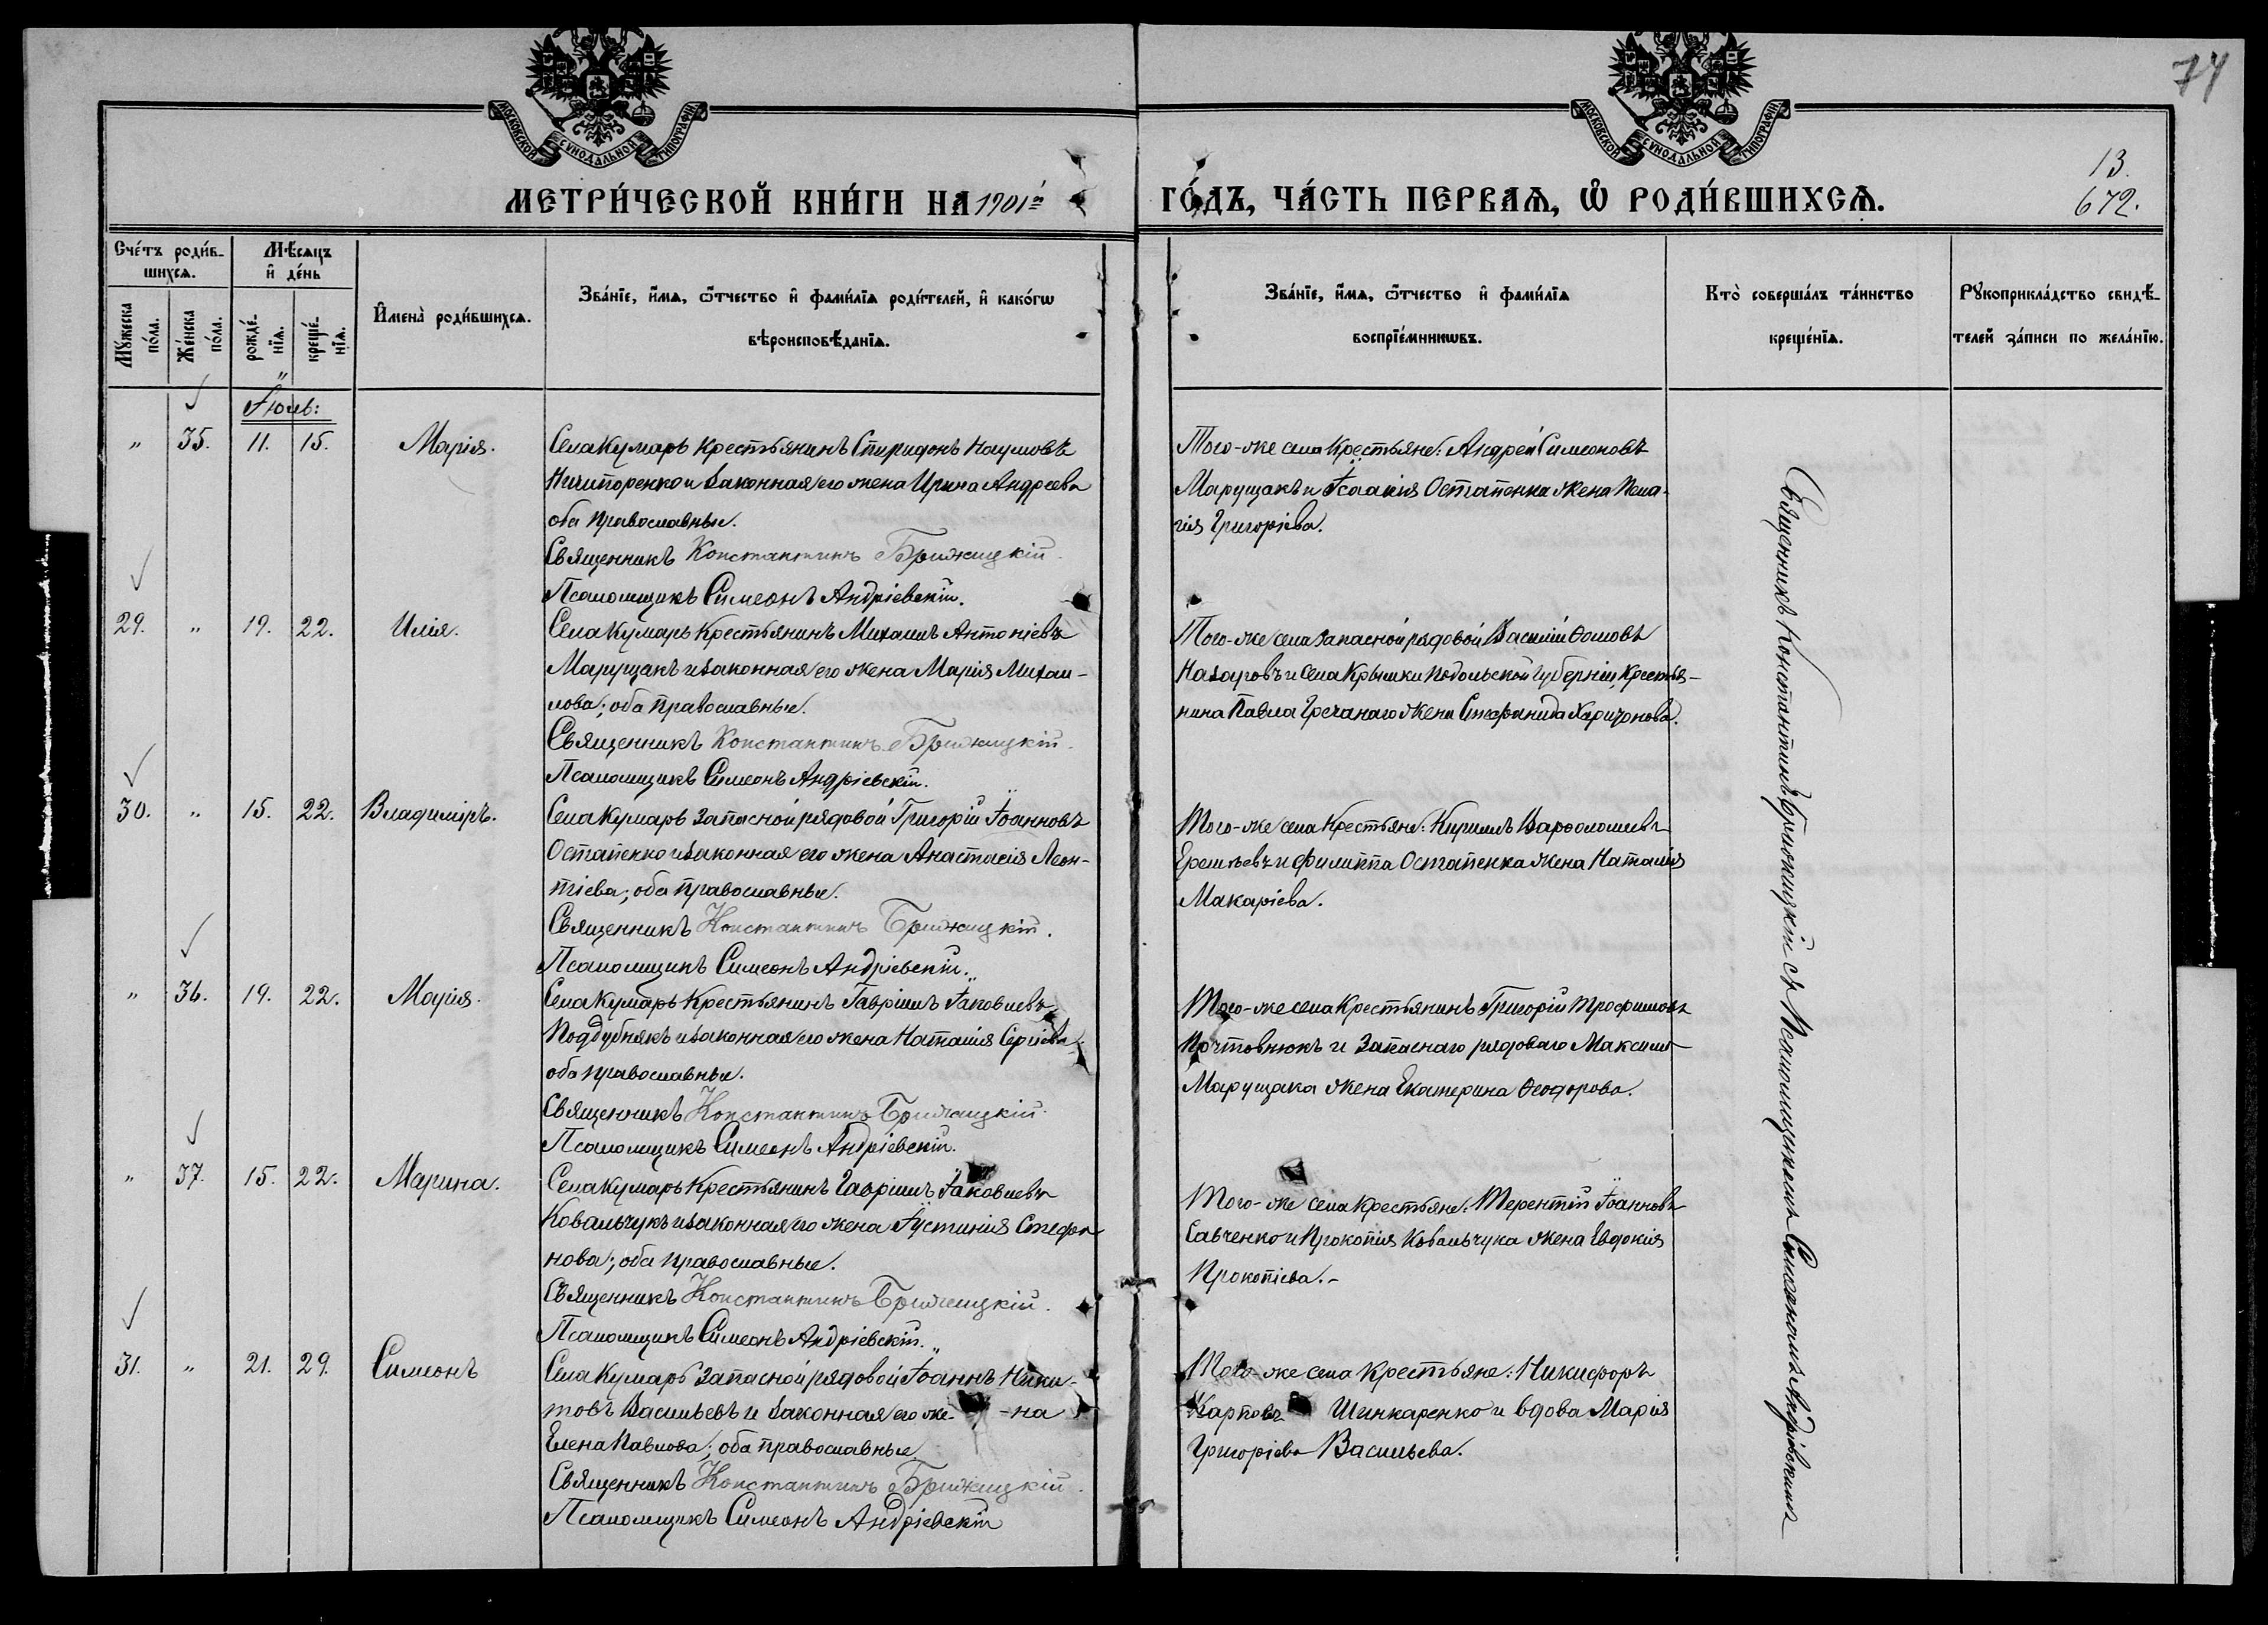 74
МОСКОВСКОЙ СѴНОДАЛЬНОЙ ТИПОГРАФІИ
МОСКОВСКОЙ СѴНОДАЛЬНОЙ ТИПОГРАФІИ
МЕТРИ́ЧЕСКОЙ КНИ́ГИ НА 1901й
ГО́ДЪ, ЧА́СТЬ ПЕРВАѦ, Ѡ҆ РОДИ́ВШИХСѦ.
13.
672.
Сче́тъ роди́в-
шихсѧ.
Мꙋ́жеска по́ла.
Же́нска по́ла.
Мѣ́сѧцъ
и҆ де́нь
рожде́-
нїѧ.
креще́-
нїѧ.
И҆мена̀ роди́вшихсѧ.
Зва́нїе, и҆́мѧ, ѻ҆́тчество и҆ фамі́лїѧ роди́телей, и҆ како́гѡ
вѣроисповѣ́данїѧ.
Зва́нїе, и҆́мѧ, ѻ҆́тчество и҆ фамі́лїѧ
воспрїе́мникѡвъ.
Кто̀ соверша́лъ та́инство
креще́нїѧ.
Рꙋкоприкла́дство свидѣ́-
телей за́писи по жела́нїю.
Іюль:
" 35. 11. 15. Марія.
Села Кумаръ крестьянинъ Спиридонъ Наумовъ
Ничипоренко и законная его жена Ирина Андреева
оба православные.
Священникъ Константинъ Брижицкій.
Псаломщикъ Симеонъ Андріевскій.
Того-же села крестьяне: Андрей Симеоновъ
Марущакъ и Ісаакія Остапенка жена Пела-
гія Григоріева.
29. " 19. 22. Илія.
Села Кумаръ крестьянинъ Михаилъ Антоніевъ
Марущакъ и законная его жена Марія Михаи-
лова; оба православные.
Священникъ Константинъ Брижицкій.
Псаломщикъ Симеонъ Андріевскій.
Того-же села запасной рядовой Василій Ѳомовъ
Назаровъ и села Крышки Подольской губерніи, крестья-
нина Павла Гречанаго жена Стефанида Харитонова.
30. " 15. 22. Владиміръ.
Села Кумаръ запасной рядовой Григорій Іоанновъ
Остапенко и законная его жена Анастасія Леон-
тіева; оба православные.
Священникъ Константинъ Брижицкій.
Псаломщикъ Симеонъ Андріевскій.
Того-же села крестьяне: Кириллъ Варѳоломеевъ
Еремѣевъ и Филиппа Остапенка жена Наталія
Макаріева.
" 36. 19. 22. Марія.
Села Кумаръ крестьянинъ Гавріилъ Іаковлевъ
Поддубнякъ и законная его жена Наталія Сергіева
оба православные.
Священникъ Константинъ Брижицкій.
Псаломщикъ Симеонъ Андріевскій.
Того-же села крестьянинъ Григорій Трофимовъ
Почтовнюкъ и запаснаго рядоваго Максима
Марущака жена Екатерина Ѳеодорова.
" 37. 15. 22. Марина.
Села Кумаръ крестьянинъ Гавріилъ Іаковлевъ
Ковальчукъ и законная его жена Іустинія Стефа
нова; оба православные.
Священникъ Константинъ Брижицкій.
Псаломщикъ Симеонъ Андріевскій.
Того-же села крестьяне: Терентій Іоанновъ
Савченко и Прокопія Ковальчука жена Евдокія
Прокопіева.-
31. " 21. 29. Симеонъ
Села Кумаръ запасной рядовой Іоаннъ Ники-
товъ Васильевъ и законная его же- -на
Елена Павлова; оба православные
Священникъ Константинъ Брижицкій.
Псаломщикъ Симеонъ Андріевскій
Того-же села крестьяне: Никифоръ
Карповъ Шинкаренко и вдова Марія
Григоріева Васильева.
Священникъ Константинъ Брижицкій съ Псаломщикомъ Симеономъ Андріевскимъ